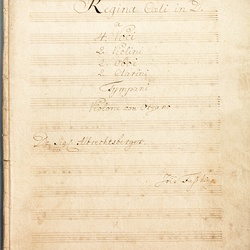 Regina Cæli in D.
a
4. Voci
2. Violini
2. Oboi
2. Clarini
Tympani
Violone con Organo
Del Sig: Albrechtsberger.